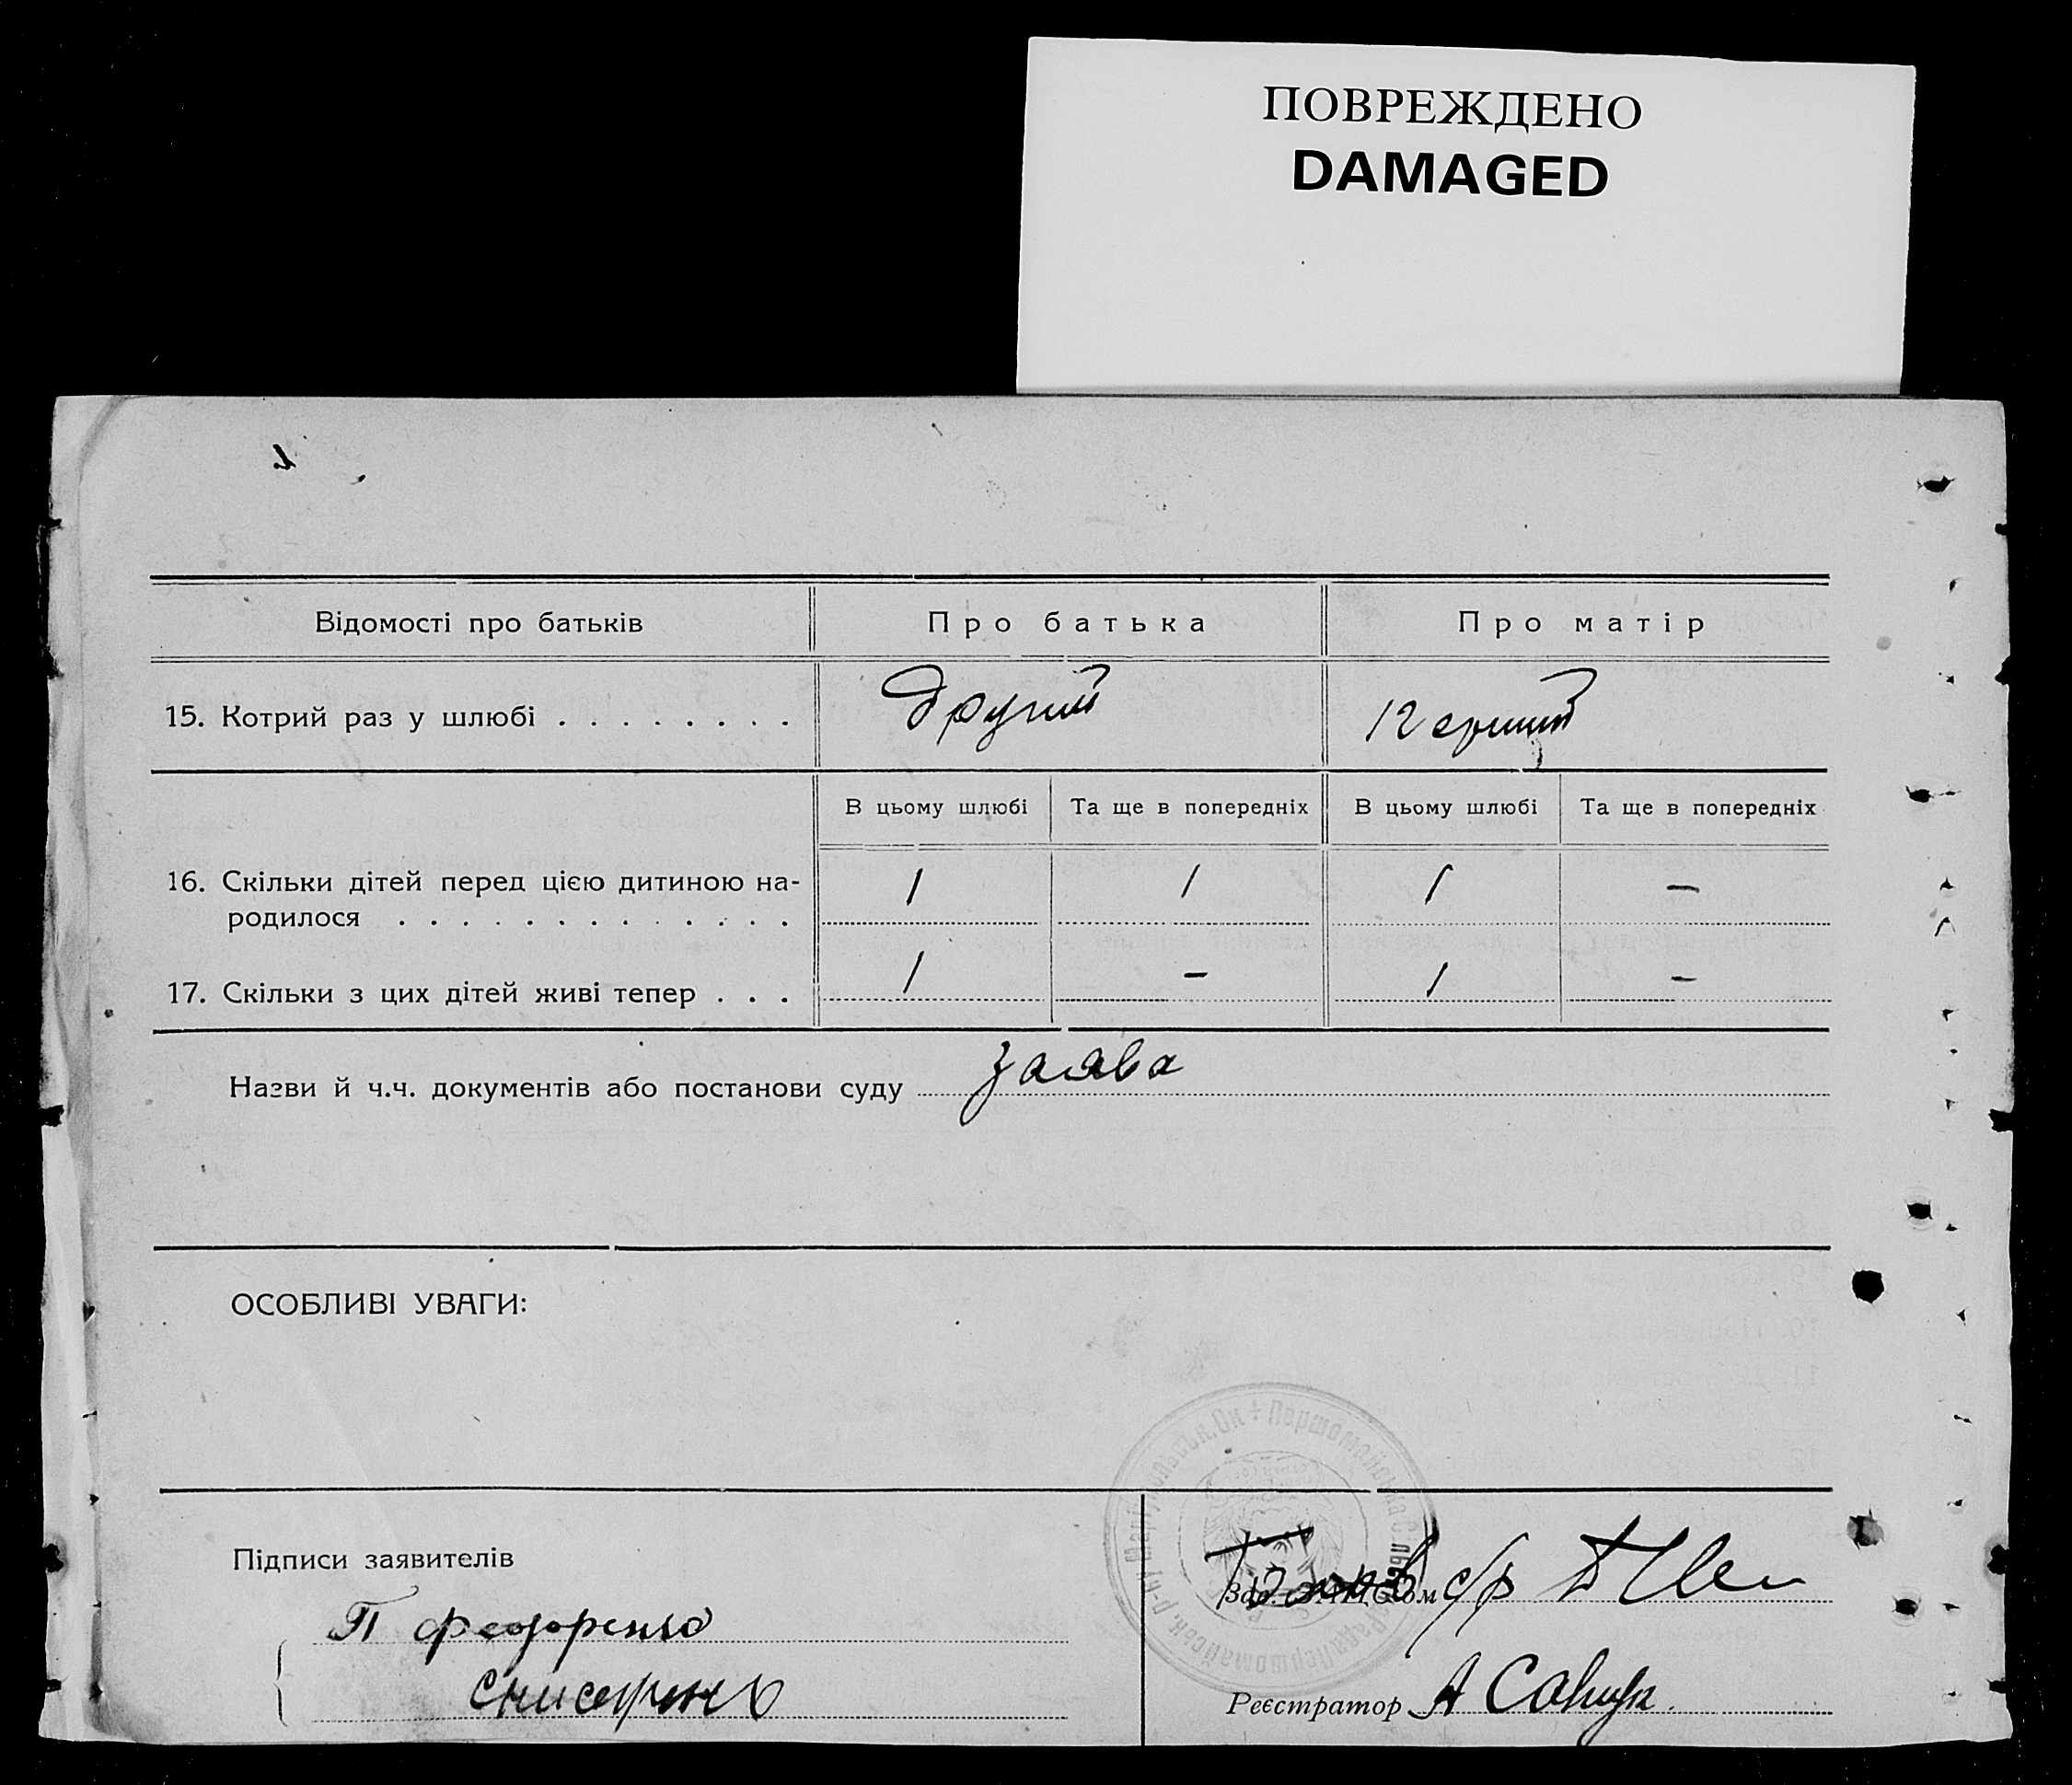 ПОВРЕЖДЕНО
DAMAGED
Відомості про батьків
Про батька
Про матір
15. Котрий раз у шлюбі . . . . . . . .
Другий
Перший
В цьому шлюбі
Та ще в попередніх
В цьому шлюбі
Та ще в попередніх
16. Скільки дітей перед цією дитиною на-
родилося . . . . . . . . . . . . .
1
1
1
—
17. Скільки з цих дітей живі тепер . . .
1
—
1
—
Назви й ч.ч. документів або постанови суду
заява
ОСОБЛИВІ УВАГИ:
Підписи заявителів
П Федоренко
Реєстратор А